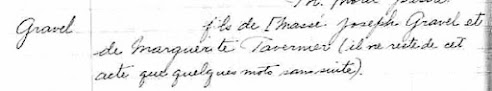 Gravel fils de Massé Joseph Gravel et
de Marguerite Tavernier (il ne reste de cet
acte que quelques mots sans suite).